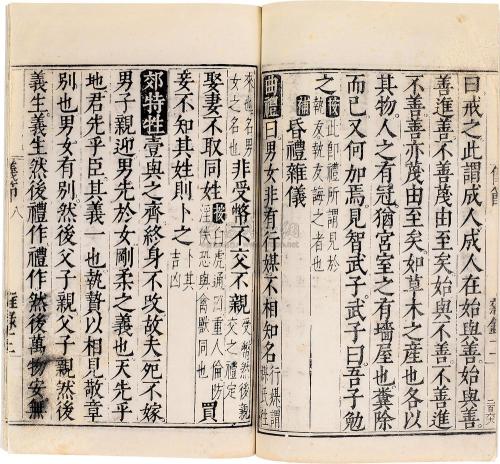 曰戒之此謂成人成人在始與善。
善進善不善蔑由至矣始與不善不善進
不善善亦蔑由至矣如草木之産也各以
其物人之有冠猶宮室之有牆屋也糞除
而已又何加焉見智武子武子曰吾子勉
之按此即禮所謂見於
執友執友誨之者也
補 昏禮雜儀
曲禮曰男女非有行媒不相知名行媒謂
來也名男
女之名也非受幣不交不親受幣然後親
交之禮定
娶妻不取同姓按白虎通曰重人倫防
淫泆恐與禽獸同也買
妾不知其姓則卜之卜其
吉凶
郊特牲壹與之齊終身不改故夫死不嫁
男子親迎男先於女剛柔之義也天先乎
地君先乎臣其義一也執贄以相見敬章
別也男女有別然後父子親父子親然後
義生義生然後禮作禮作然後萬物安無